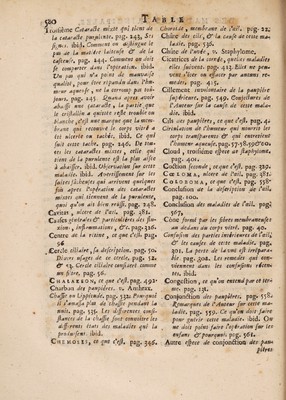 500 TABLE
Troisiéme Cataracte mixte qui tient de
la cataracte purulente, pag. 243,
ibid. Comment on distingue le
pus de la matiére laiteuse & de la
caseeuse, pag. 244. Comment on doit
se comporter dans l'opération. ibid.
Un pus qui n'a point de mauvaise
qualité, peut être répandu dans l'hu-
meur aqueuse, ne la corrompt pas tou-
jours, pag. 245. Quand après avoir
abaissé une cataracte, la partie que
le cristallin a quittée reste trouble ou
blanche, c'est une marque que la mem-
brane qui recouvre le corps vitré a
été altérée ou tachée, ibid. Ce qui
suit cette tache, pag. 246. De tou-
tes les cataractes mixtes, celle qui
tient de la purulente est la plus aisée
à abaisser. ibid. Observation sur cette
maladie. ibid. Avertissement sur les
suites fâcheuses qui arrivent quelque-
fois après l'opération des cataractes
mixtes qui tiennent de la purulente,
quoi qu'on ait bien réussi, pag. 248.
Cavité, ulcere de l'œil, pag. 381.
Causes générales & particulières des
inflammations, &c. pag. 326.
Centre de la rétine, ce que c'est, pag.
96
Cercle ciliaire, sa description, pag. 50.
Divers usages de ce cercle, pag. 52
& 53. Cercle ciliaire consideré comme
un filtre, pag. 56.
CHALASEON, ce que c'est, pag. 492.
Charbon des paupiéres, v. Anthrax.
Chasse ou Lippitude, pag. 532. Pourquoi
il s'amasse plus de chassie pendant la
nuit, pag. 535. Les differentes consi-
stances de la chassie font connoître les
differents états des maladies qui la
produisent. ibid.
CHEMOSIS, ce que c'est, pag. 346.
Choroïde, membrane de l'œil, pag. 22.
Chûte des cils, & la cause de cette mala-
die, pag. 536.
Chûte de l'uvée, v. Staphylome.
Cicatrices de la cornée, quelles maladies
elles suivent, pag. 423. Elles ne peu-
vent s'ôter ou effacer par aucuns re-
médes, pag. 425.
Cillement involontaire de la paupière
supérieure, pag. 549. Conjecture de
l'Auteur sur la cause de cette mala-
die. ibid.
Cils des paupiéres, ce que c'est, pag. 4.
Circulation de l'humeur qui nourrit les
corps transparents & qui entretient
l'humeur aqueuse, pag. 57.
Clou, troisiéme espèce de Staphylome,
pag. 400.
Coction seconde, ce que c'est, pag. 329.
CŒLOMA, ulcere de l'œil, pag. 381.
COLOBOMA, ce que c'est, pag. 558.
Conclusion de la description de l'œil,
pag. 100.
Conclusion des maladies de l'œil, pag.
567.
Cône formé par les fibres membraneuses
au dedans du corps vitré, pag. 40.
Confusion des parties intérieures de l'œil,
& les causes de cette maladie, pag.
301. La perte de la vuë est irrépara-
ble, pag. 302. Les remedes qui con-
viennent dans les confusions récen-
tes, ibid.
Congestion, ce qu'on entend par ce ter-
me, pag. 131.
Conjonction des paupiéres, pag. 558.
Remarques de l'Auteur sur cette ma-
ladie, pag. 559. Ce qu'on doit faire
pour guérir cette maladie. ibid. On
ne doit point faire l'opération sur les
enfans & pourquoi, pag. 561.
Autre espèce de conjonction des pau-
piéres